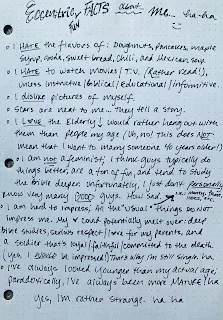 Eccentric FACTS about me... ha-ha
FUN
• I HATE the flavors of: Doughnuts, pancakes, maple
syrup, soda, sweet bread, chili, and Mexican soup.
• I HATE to watch movies/T.V. (Rather read!),
unless instructive/biblical/educational/informitive.
• I dislike pictures of myself.
• Scars are neat to me... They tell a story.
• I LOVE the Elderly! I would rather hang out with
them than people my age (Uh, no! this does NOT
mean that I want to marry someone 90 years older!)
• I am not a feminist; I think guys typically do
things better, are a ton of fun, and tend to study
the bible deeper. Unfortunately, I just don't personally
know very many GOOD guys. How sad.
• I am hard to impress; All the "usual" Things do NOT
impress me. My ♥ could potentially melt over: deep
bible studies, serious respect/love for my parents, and
a soldier that's loyal/faithful/committed to the death.
(yes, I would be impressed!) That's why I'm still single. ha
• I've always looked younger than my actual age;
paradoxically, I've always been more Mature! ha
Yes, I'm rather strange. ha ha